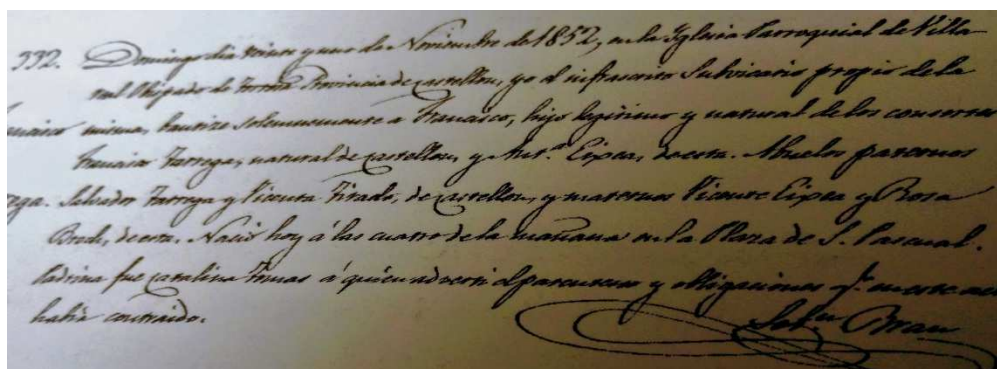 332. Domingo dia veinte y uno de Noviembre de 1852, en la Yglesia Parroquial de Villa
real Obispado de Tortosa Provincia de Castellon, yo el infrascrito Subvicario propio de la
misma, bautize solemnemente a Francisco, hijo legitimo y natural de los consortes
Francisco Tarrega, natural de Castellon, y Ant.ª Eixea, de esta. Abuelos paternos
Salvador Tarrega y Vicenta Tirado, de Castellon, y maternos Vicente Eixea y Rosa
Broch, de esta. Nació hoy á las cuatro de la mañana en la Plaza de S. Pascual.
Padrina fue Catalina á quien advertí el parentesco y obligaciones q.e en este acto
habia contraido.
Seb.n Brau